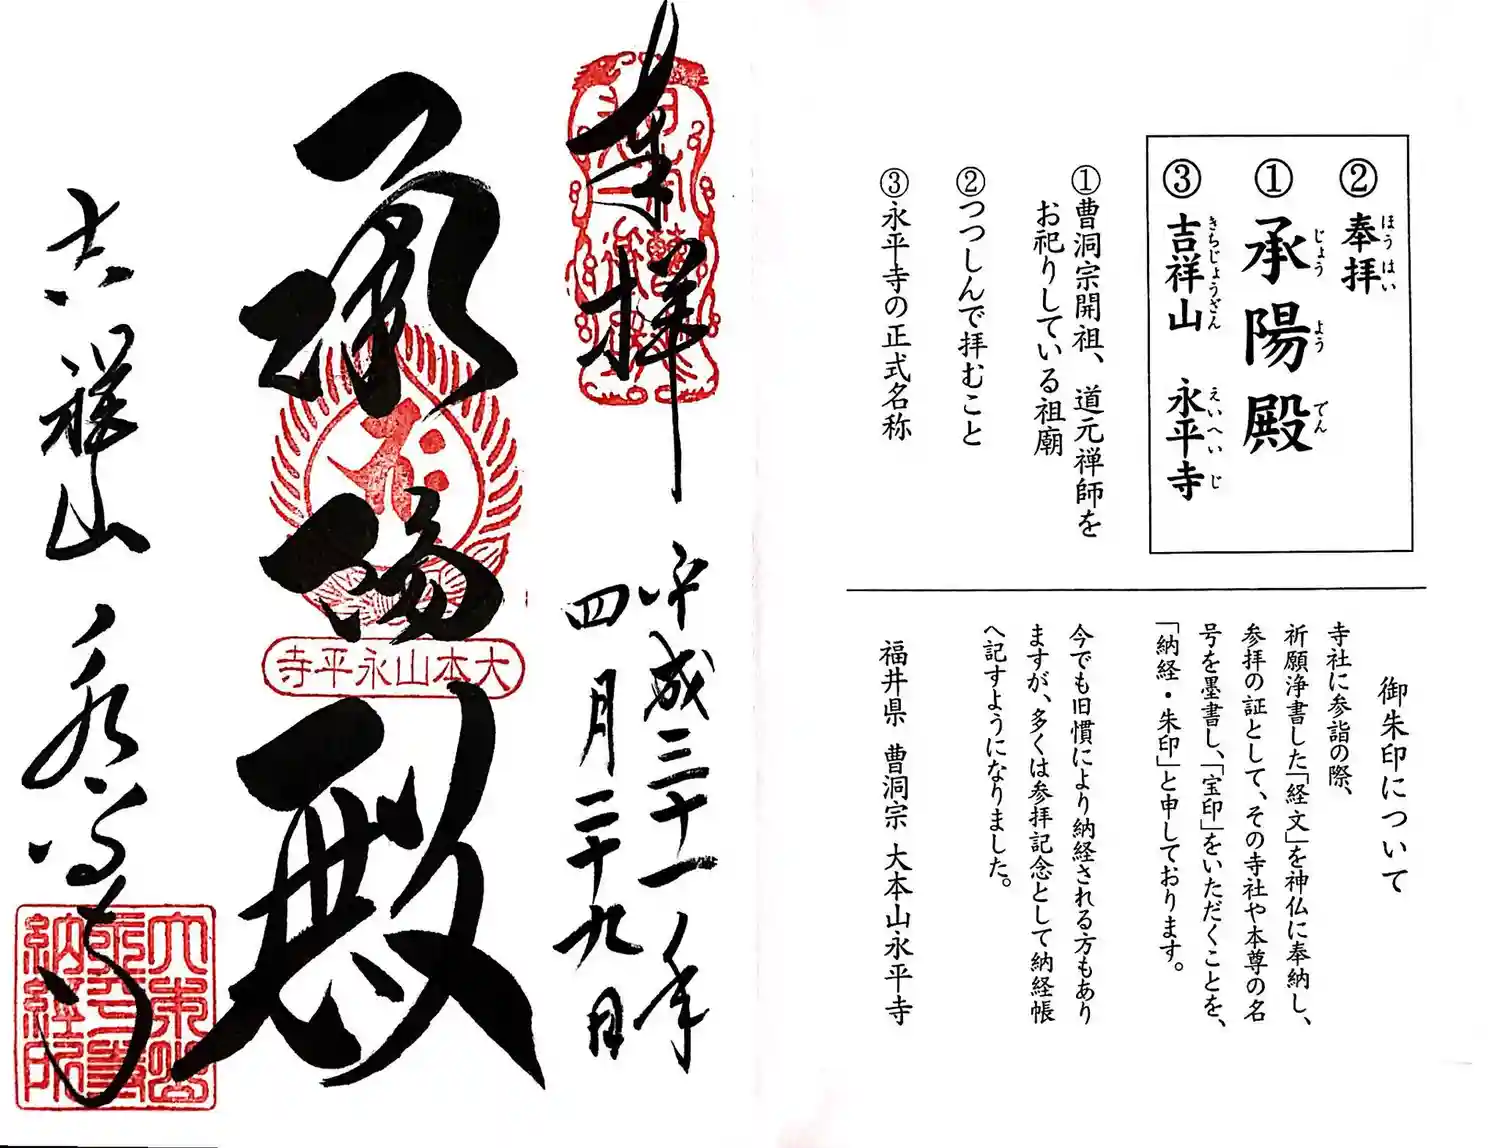 ② 奉拝
ほうはい
① 承陽殿
じょうようでん
③ 吉祥山 永平寺
きちじょうざん えいへいじ
①曹洞宗開祖、道元禅師を
お祀りしている祖廟
②つつしんで拝むこと
③永平寺の正式名称
御朱印について
寺社に参詣の際、
祈願浄書した「経文」を神仏に奉納し、
参拝の証として、その寺社や本尊の名
号を墨書し、「宝印」をいただくことを、
「納経・朱印」と申しております。
今でも旧慣により納経される方もあり
ますが、多くは参拝記念として納経帳
へ記すようになりました。
福井県 曹洞宗 大本山永平寺
奉拝
平成三十一年
四月二十九日
承陽殿
寺平永山本大
吉祥山 永平寺
大本山
永平寺
納経所